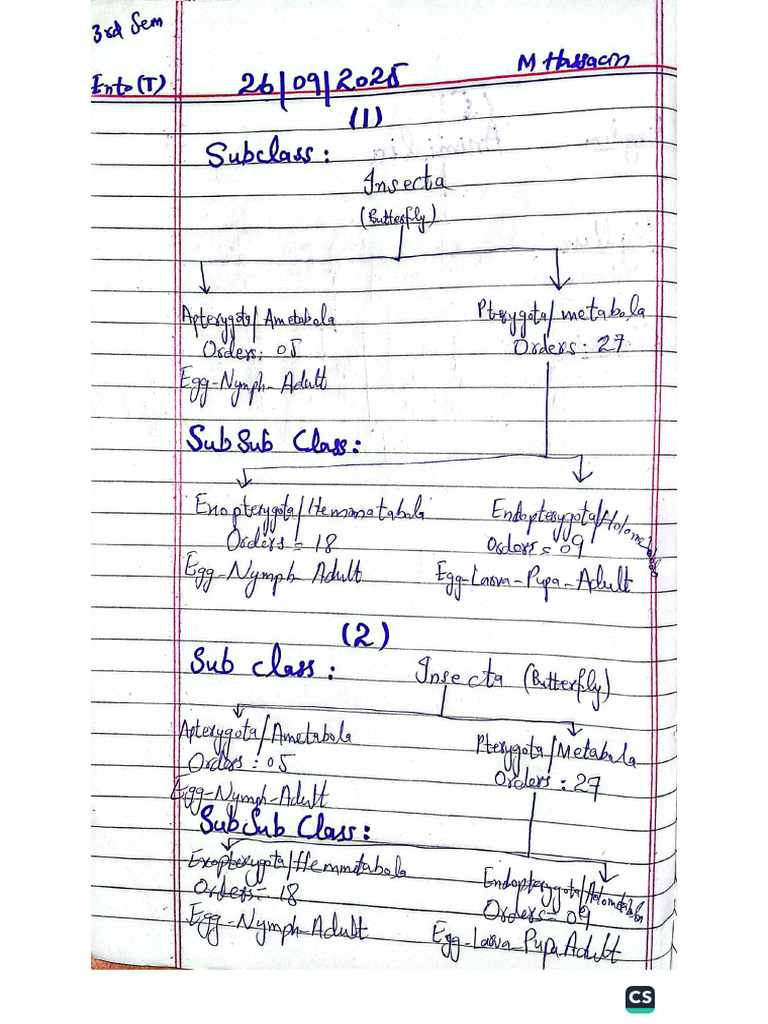 3rd Sem
Ento (T) 26/09/2025 M Hassaan
(1)
Subclass:
Insecta
(Butterfly)
Apterygota/Ametabola Pterygota/metabola
Orders: 05 Orders: 27
Egg-Nymph-Adult
SubSub Class:
Exopterygota/Hemimatabola Endopterygota/Holometabola
Orders = 18 Orders = 09
Egg-Nymph Adult Egg-Larva-Pupa-Adult
(2)
Sub class: Insecta (Butterfly)
Apterygota/Ametabola Pterygota/Metabola
Orders: 05 Orders: 27
Egg-Nymph-Adult
SubSub Class:
Exopterygota/Hemmetabola Endopterygota/Holometabola
Orders= 18 Orders= 09
Egg-Nymph-Adult Egg-Larva-Pupa Adult
CS